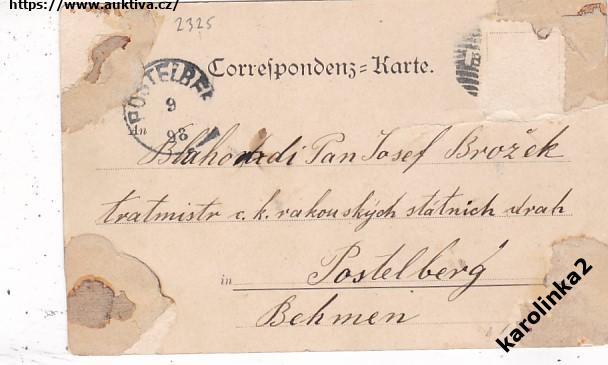 https://www.auktiva.cz/
2325
Correspondenz=Karte.
POSTELBE
9
98
An
Blahorodí Pan Josef Brožek
tratmistr c. k. rakouských státních drah
in Postelberg
Behmen
karolinka2